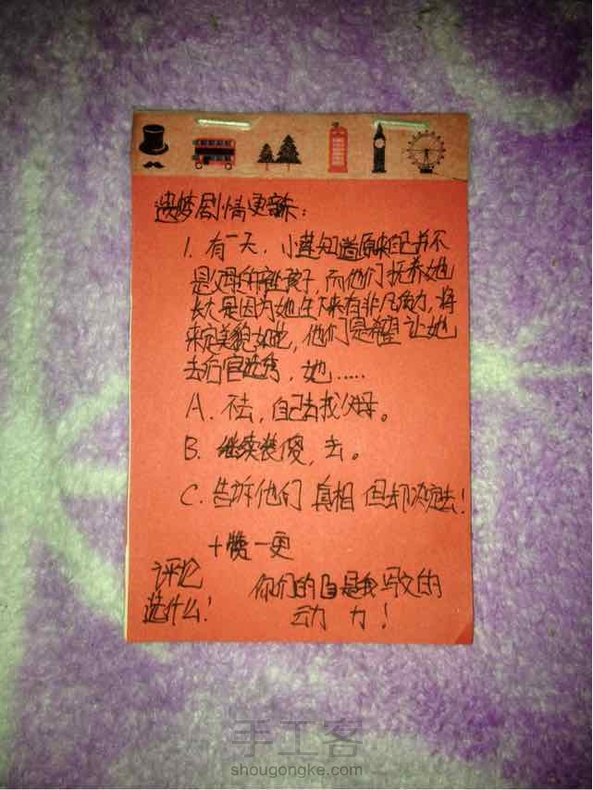 遗梦剧情更新:
1. 有一天，小莲知道原来自己并不
是父母的亲生孩子，而他们抚养她
长大是因为她生下来有非凡魔力，将
来定美貌如此，他们是希望让她
去后宫选秀，她……
A. 不去，自己去找父母。
B. 继续装傻，去。
C. 告诉他们 真相 但却决定去！
十赞一更
评论
选什么！
你们的 是我写文的
动 力！
手工客
shougongke.com